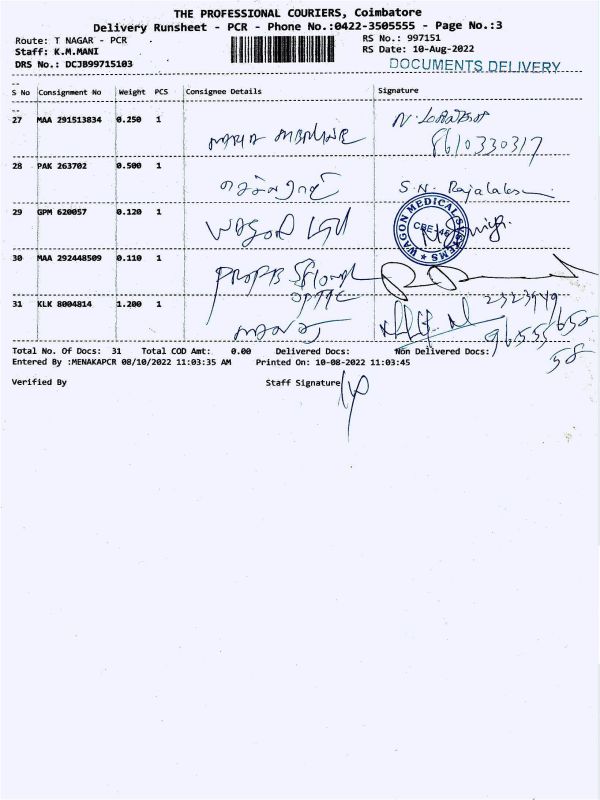 THE PROFESSIONAL COURIERS, Coimbatore
Delivery Runsheet - PCR - Phone No.:0422-3505555 - Page No.:3
Route: T NAGAR - PCR
RS No.: 997151
Staff: K.M.MANI
RS Date: 10-Aug-2022
DRS No.: DCJB99715103
DOCUMENTS DELIVERY
S No Consignment No Weight PCS Consignee Details Signature
27 MAA 291513834 0.250 1
8610330317
28 PAK 263702 0.500 1 S.N. Rajalaks
29 GPM 620057 0.120 1
WAGON MEDICAL SYSTEMS
CBE-46
30 MAA 292448509 0.110 1
2323949
31 KLK 8004814 1.200 1
Total No. Of Docs: 31 Total COD Amt: 0.00 Delivered Docs: Non Delivered Docs:
Entered By :MENAKAPCR 08/10/2022 11:03:35 AM Printed On: 10-08-2022 11:03:45
Verified By Staff Signature